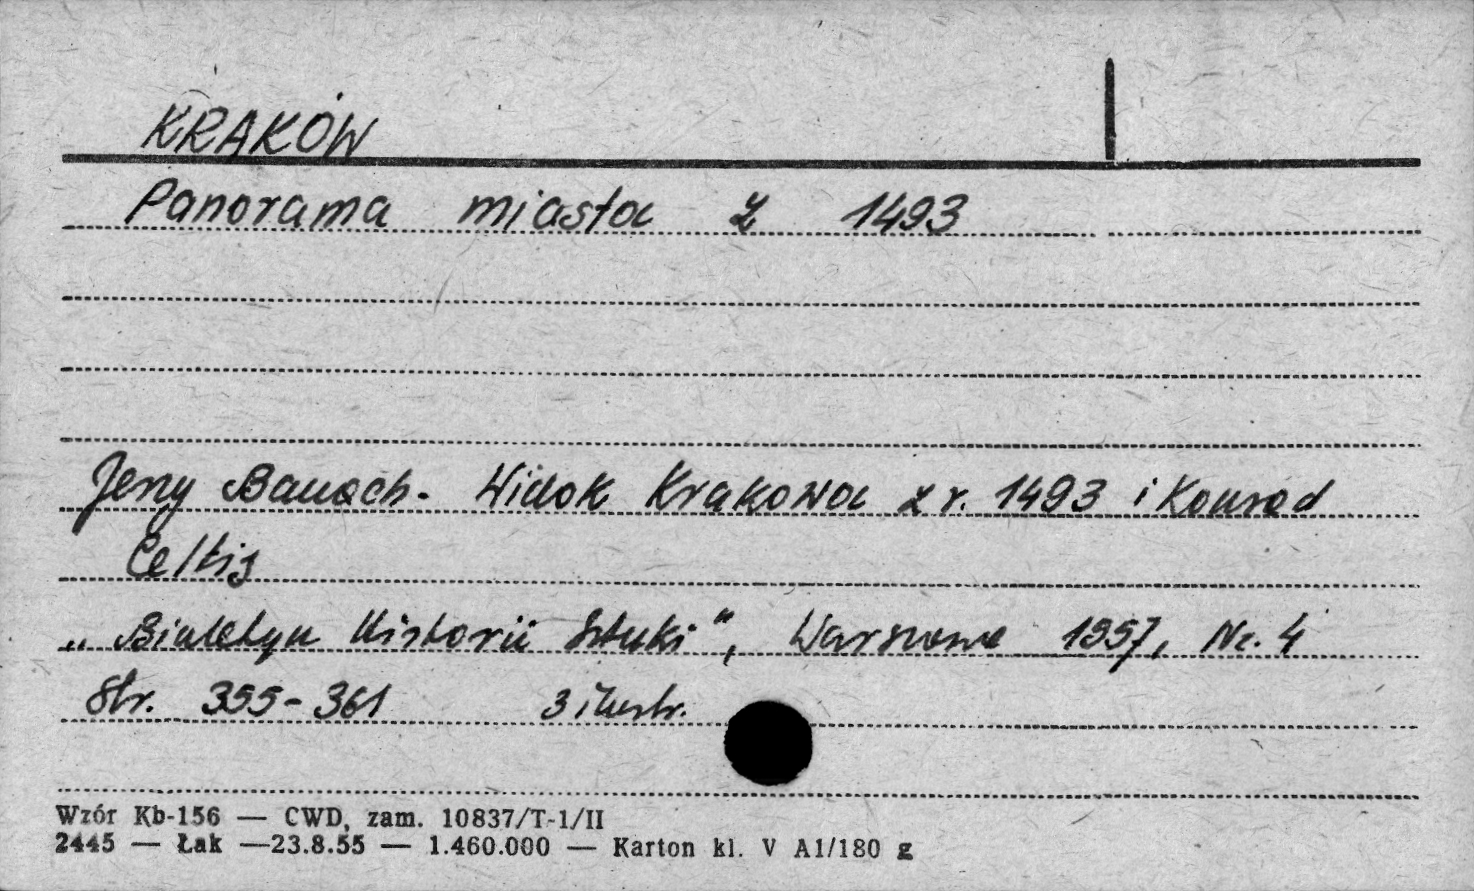 KRAKÓW
Panorama miasta z 1493
Jerzy Banach. Widok Krakowa z r. 1493 i Konrad
Celtis
„Biuletyn Historii Sztuki", Warszawa 1957, Nr. 4
Str. 355-361 3 ilustr.
Wzór Kb-156 — CWD, zam. 10837/T-1/II
2445 — Łak —23.8.55 — 1.460.000 — Karton kl. V A1/180 g